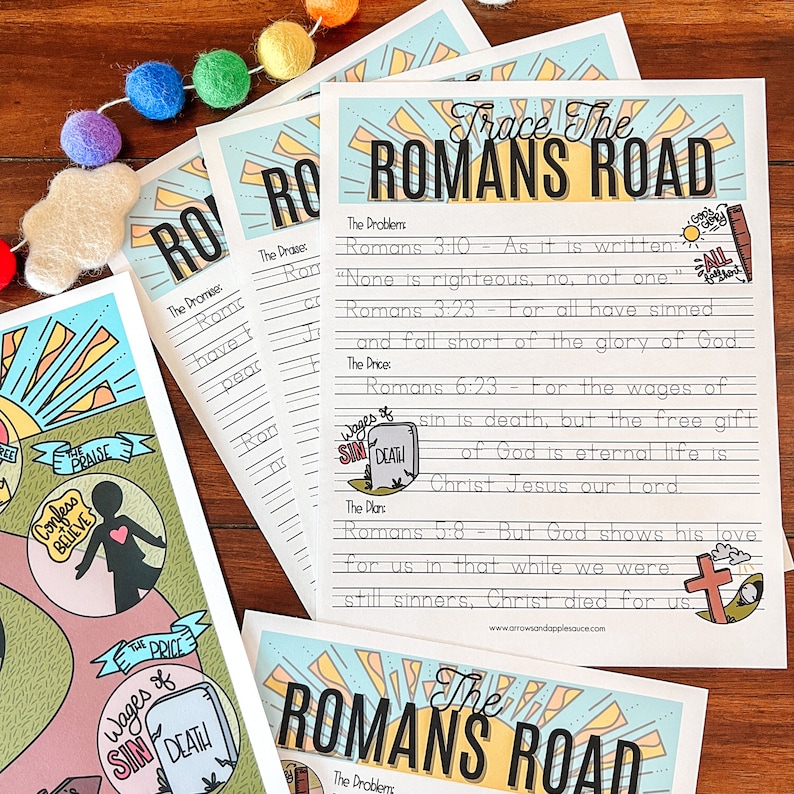 Trace The
ROMANS ROAD
The Problem:
Romans 3:10 - As it is written:
"None is righteous, no, not one."
Romans 3:23 - For all have sinned
and fall short of the glory of God.
God's
Glory
ALL
fall short
The Price:
Romans 6:23 - For the wages of
sin is death, but the free gift
of God is eternal life is
Christ Jesus our Lord.
Wages of
SIN
DEATH
The Plan:
Romans 5:8 - But God shows his love
for us in that while we were
still sinners, Christ died for us.
www.arrowsandapplesauce.com
ROM
The Praise:
RO
The Promise:
have
peac
THE
PRAISE
Confess
+
BELIEVE
THE
PRICE
Wages of
SIN
DEATH
The
ROMANS ROAD
The Problem: